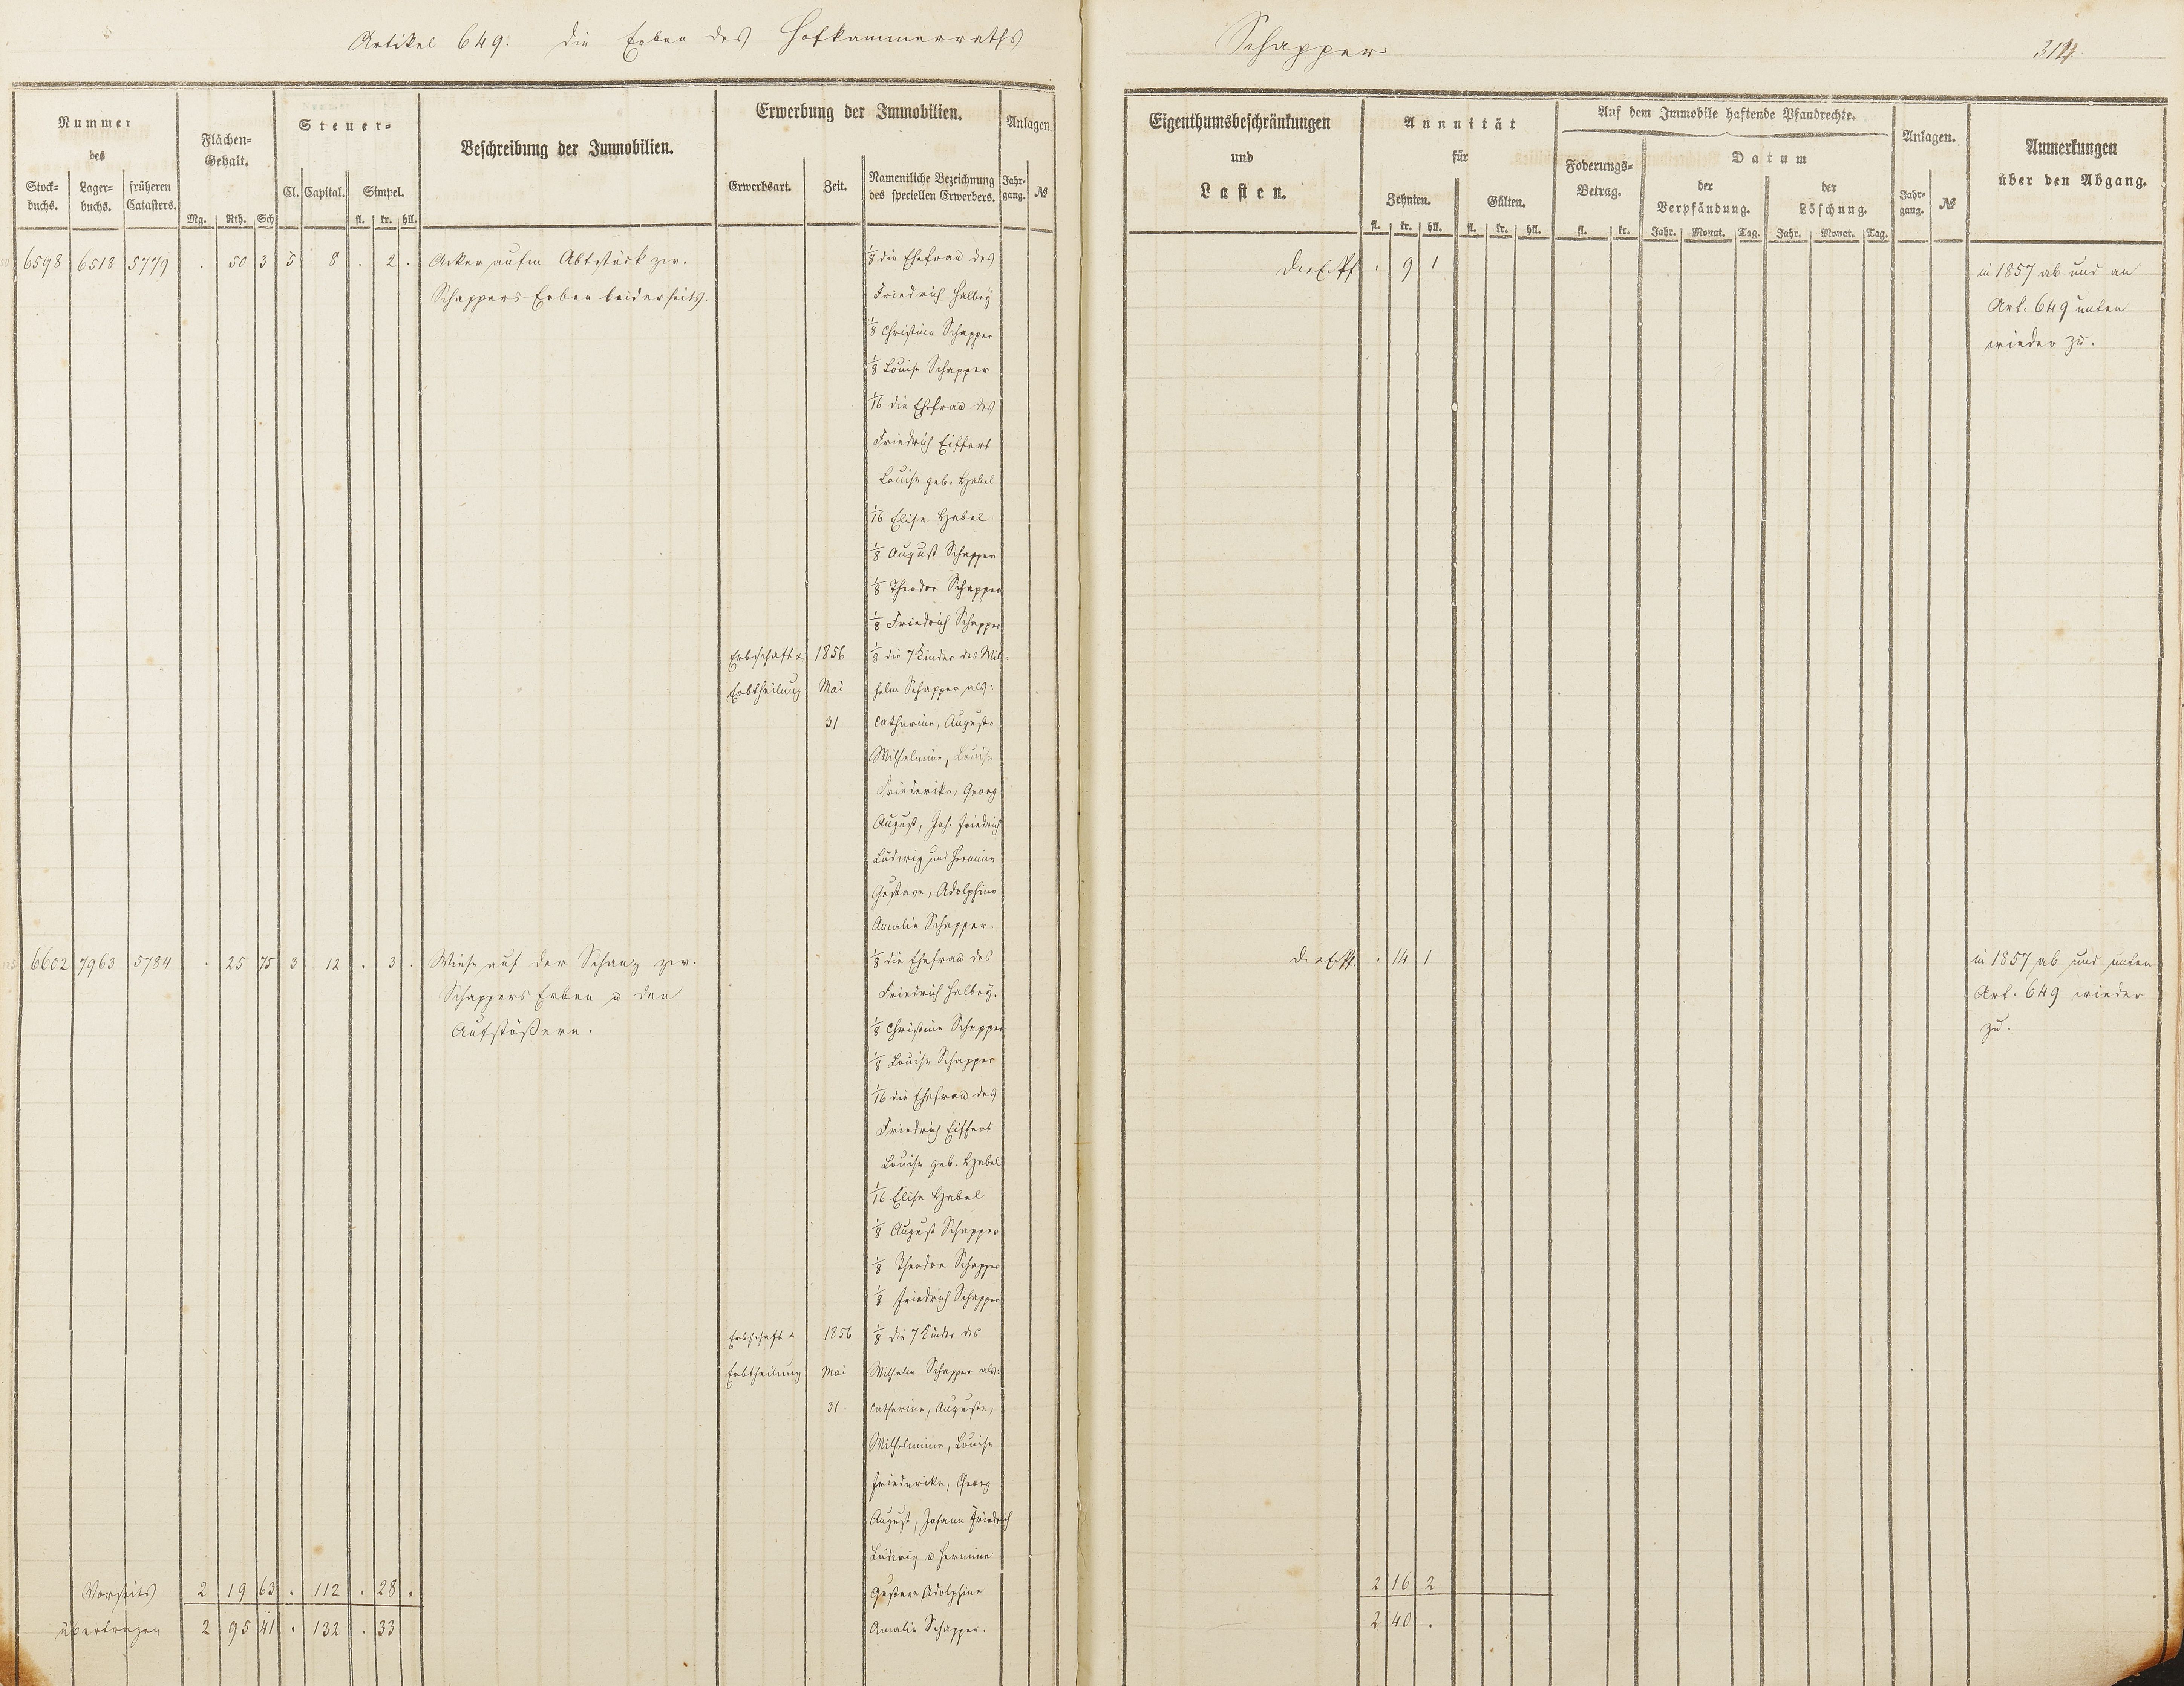 Artikel 649. die Erben des Hofkammerraths
Schapper
314
Nummer
des
Stock-
buchs.
Lager-
buchs.
früheren
Catasters.
Flächen-
Gehalt.
Mg. Rth. Sch
Steuer-
Cl. Capital. Simpel.
fl. kr. hll.
Beschreibung der Immobilien.
Erwerbung der Immobilien.
Erwerbsart. Zeit.
Namentliche Bezeichnung
des speciellen Erwerbers.
Anlagen
Jahr-
gang.
№
Eigenthumsbeschränkungen
und
Lasten.
Annuität
für
Zehnten. Gülten.
fl. kr. hll. fl. kr. hll.
Auf dem Immobile haftende Pfandrechte.
Foderungs-
Betrag.
fl. kr.
Datum
der
Verpfändung.
der
Löschung.
Jahr. Monat. Tag. Jahr. Monat. Tag.
Anlagen.
Jahr-
gang.
№
Anmerkungen
über den Abgang.
6598 6518 5779 . 50 3 5 8 . 2 . Acker aufm Abtsstück zw.
Schappers Erben beiderseits.
1/8 die Ehefrau des
Friedrich Halbey
1/8 Christine Schapper
1/8 Louise Schapper
1/16 die Ehefrau des
Friedrich Eiffert
Louise geb. Habel
1/16 Elise Habel
1/8 August Schapper
1/8 Theodor Schapper
1/8 Friedrich Schapper
Erbschaft & 1856 1/8 die 7 Kinder des Wil-
Erbtheilung Mai helm Schapper als:
31 Catharine, Auguste
Wilhelmine, Louise
Friederike, Georg
August, Joh. Friedrich
Ludwig und Hermine
Gustave, Adolphine
Amalie Schapper.
. 9 1
in 1857 ab und an
Art. 649 unten
wieder zu.
6602 7963 5784 . 25 75 3 12 . 3 . Wiese auf der Schanz zw.
Schappers Erben u den
Aufstößern.
1/8 die Ehefrau des
Friedrich Halbey.
1/8 Christine Schapper
1/8 Louise Schapper
1/16 die Ehefrau des
Friedrich Eiffert
Louise geb. Habel
1/16 Elise Habel
1/8 August Schapper
1/8 Theodor Schapper
1/8 Friedrich Schapper
Erbschaft & 1856 1/8 die 7 Kinder des
Erbtheilung Mai Wilhelm Schapper als:
31 Catharine, Auguste,
Wilhelmine, Louise
Friederike, Georg
August, Johann Friedrich
Ludwig u Hermine
Gustave Adolphine
Amalie Schapper.
. 14 1
in 1857 ab und unten
Art. 649 wieder
zu.
Vorseits 2 19 63 . 112 . 28 .
übertragen 2 95 41 . 132 . 33
2 16 2
2 40 .